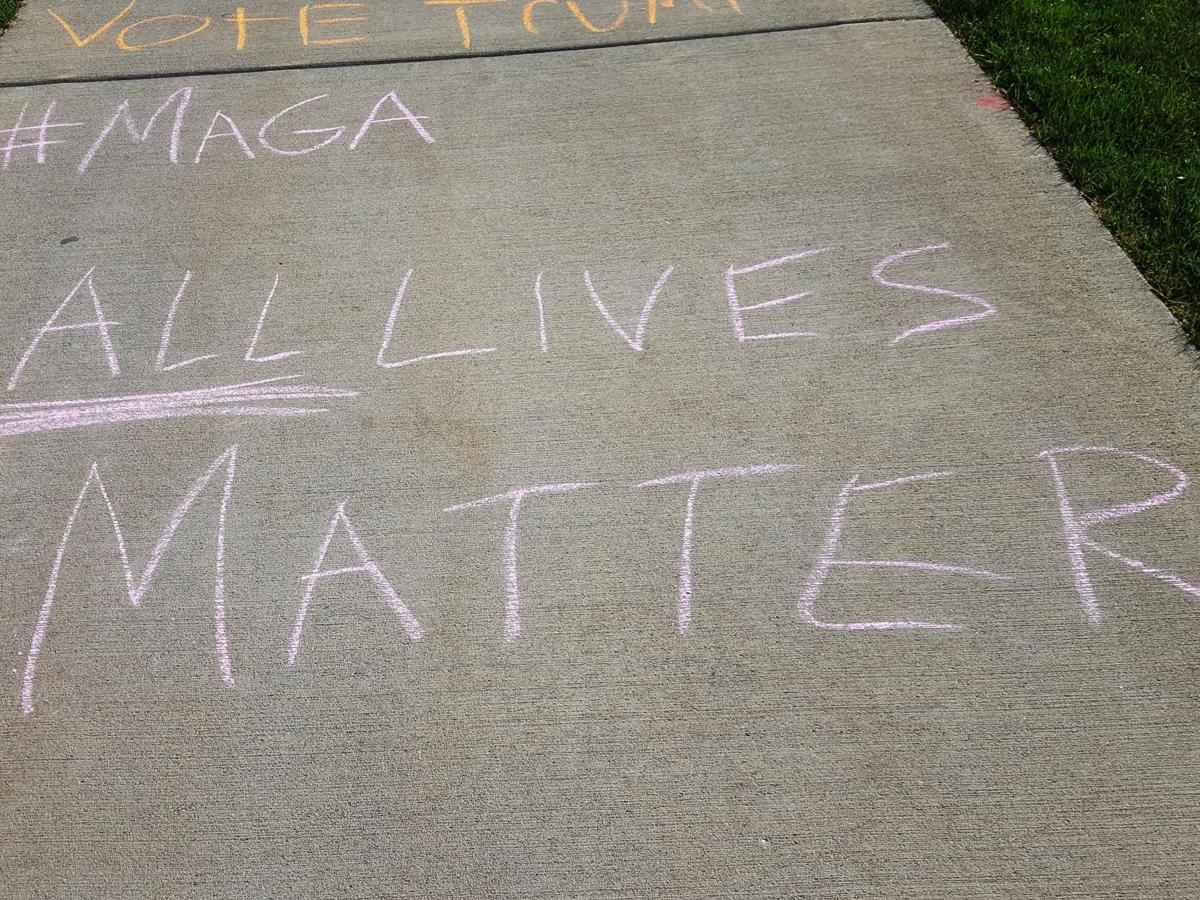 VOTE TRUMP
#MAGA
ALL LIVES
MATTER